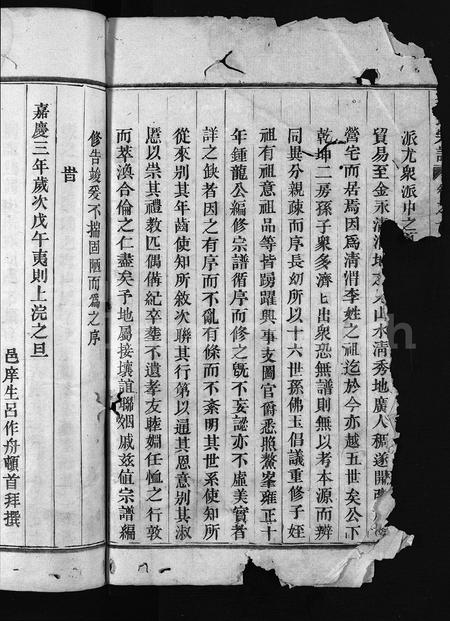 派尤衆派中之
貿易至金永清 地 山水清秀地廣人稠遂開
營宅而居焉因爲清渭李姓之祖迄於今亦越五世矣公下
乾坤二房孫子衆多濟匕出衆恐無譜則無以考本源而辨
同異分親疎而序長幼所以十六世孫佛玉倡議重修子姪
祖有祖意祖品等皆踴躍興事支圖官爵悉照鰲峯雍正十
年鍾龍公編修宗譜循序而修之旣不妄誣亦不虛美實者
詳之缺者因之有序而不亂有條而不紊明其世系使知所
從來別其年齒使知所敘次聯其行第以通其恩意別其淑
慝以崇其禮教匹偶備紀卒塟不遺孝友睦婣任恤之行敦
而萃渙合倫之仁盡矣予地屬接壤誼聯姻戚兹值宗譜編
修告竣爰不揣固陋而爲之序
旹
嘉慶三年歲次戊午夷則上浣之旦
邑庠生呂作舟頓首拜撰